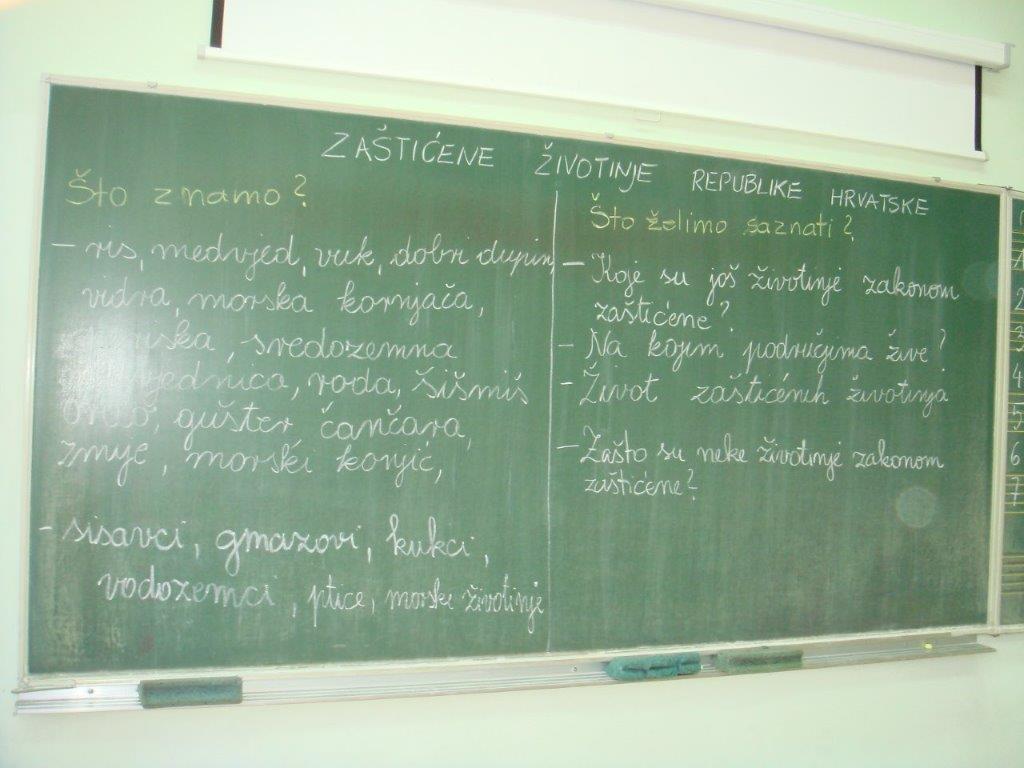 ZAŠTIĆENE ŽIVOTINJE REPUBLIKE HRVATSKE
Što znamo?
- ris, medvjed, vuk, dobri dupin,
vidra, morska kornjača,
, sredozemna
medvjednica, roda, šišmiš
orao, gušter čančara,
zmije, morski konjić,
- sisavci, gmazovi, kukci,
vodozemci, ptice, morske životinje
Što želimo saznati?
- Koje su još životinje zakonom
zaštićene?
- Na kojim područjima žive?
- Život zaštićenih životinja
- Zašto su neke životinje zakonom
zaštićene?
2
3
4
5
6
7